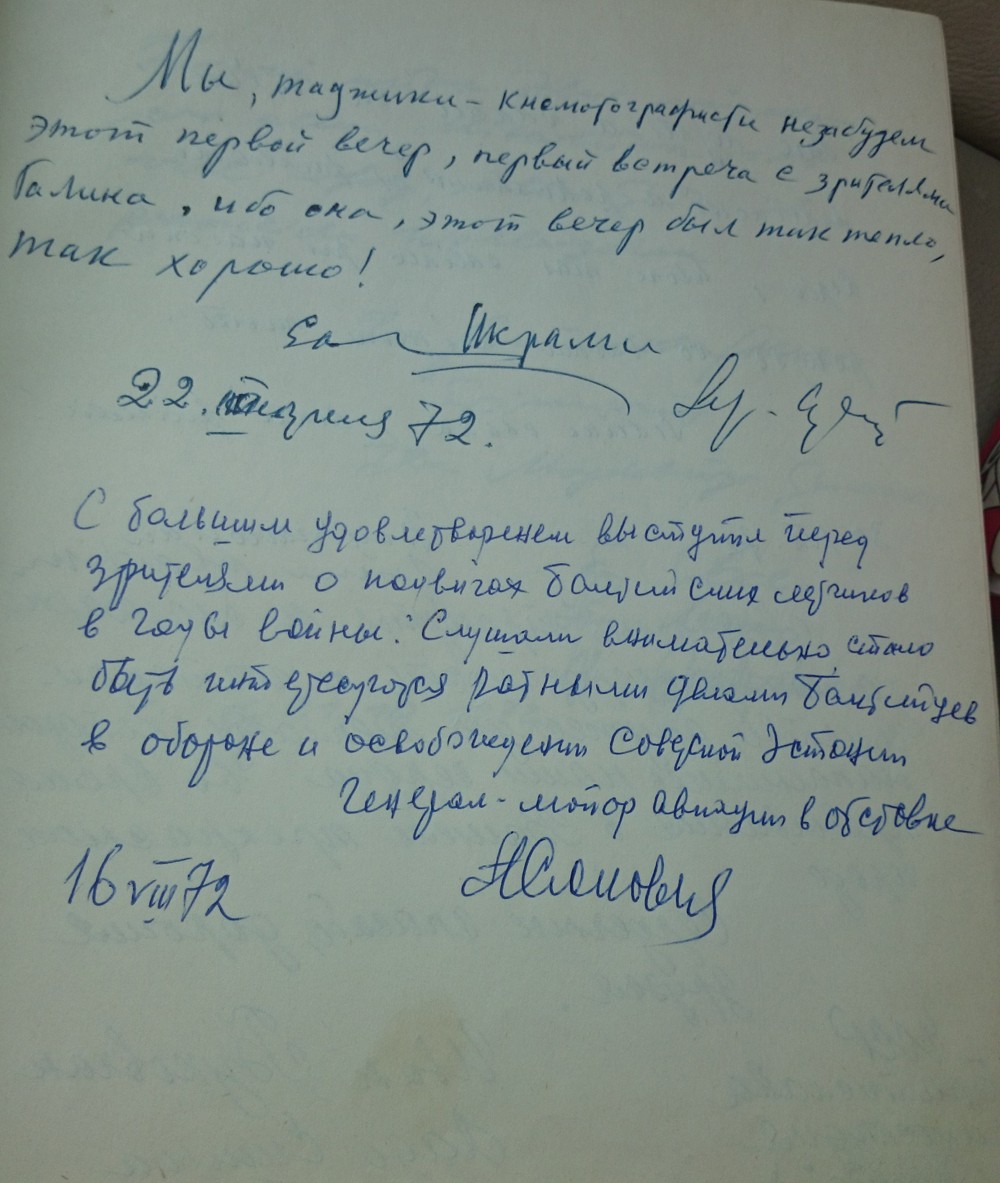 Мы, таджики - кнемотографисти незабудем
этот первой вечер, первый встреча с зрителями
Галина, ибо она, этот вечер был так тепло,
так хорошо!
Икрами
22. апреля 72.
С большим удовлетворением выступил перед
зрителями о подвигах балтийских летчиков
в годы войны. Слушали внимательно, стало
быть интересуются ратными делами балтийцев
в обороне и освобождении Советской Эстонии
Генерал-майор авиации в отставке
16 VIII 72